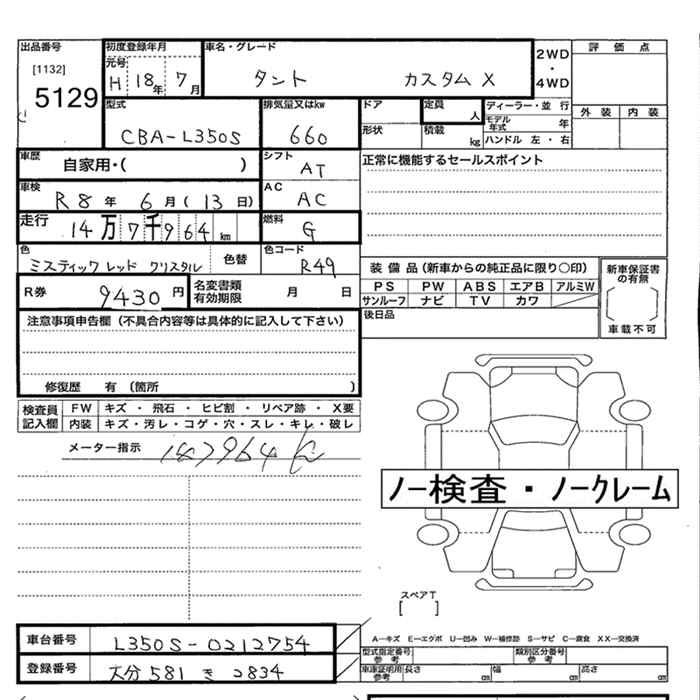 出品番号 初度登録年月 車名・グレード 2WD・4WD 評価点
[1132] 元号 H 18年 7月 タント カスタム X
5129
型式 排気量又はkw ドア 定員 人 ディーラー・並 行 外装 内装
CBA-L350S 660 形状 積載 kg モデル年式 年
ハンドル 左・右
車歴 自家用・( ) シフト AT 正常に機能するセールスポイント
車検 R8年 6月(13日) AC AC
走行 14万7千964km 燃料 G
色 ミスティックレッド クリスタル 色替 色コード R49
装備品(新車からの純正品に限り〇印) 新車保証書の有無
R券 9430円 名変書類有効期限 月 日
PS PW ABS エアB アルミW
サンルーフ ナビ TV カワ
[ ]
車載不可
注意事項申告欄(不具合内容等は具体的に記入して下さい) 後日品
修復歴 有 (箇所 )
検査員記入欄 FW キズ・飛石・ヒビ割・リペア跡・X要
内装 キズ・汚レ・コゲ・穴・スレ・キレ・破レ
メーター指示 147964
ノー検査・ノークレーム
スペアT
[ ]
車台番号 L350S-0212754
A—キズ E—エクボ U—凹み W—補修跡 S—サビ C—腐食 XX—交換済
型式指定番号 参考 類別区分番号 参考
登録番号 大分 581 き 2834
車庫証明用 参考 長さ cm 幅 cm 高さ cm